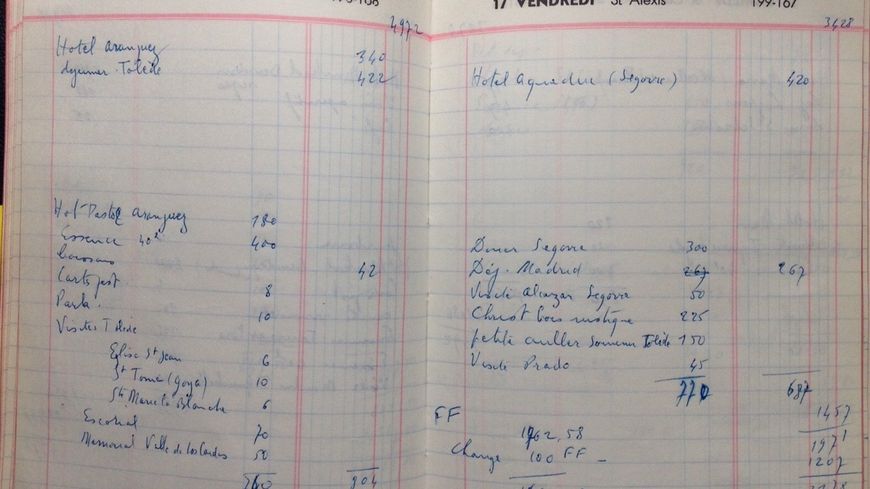 4972
Hotel Aranjuez 340
dejeuner Tolède 422
Hot Pastor Aranjuez 180
Essence 40 400
42
Carts post 8
10
Visites Tolède
Eglise St Jean 6
St Tome (Goya) 10
Sta Maria la Blanche 6
Escorial 70
Memorial Valle de los Caidos 50
804
17 VENDREDI St Alexis 199-167
3428
Hotel Aqueduc (Segovie) 420
Diner Segovie 300
Déj. Madrid 267 267
Visite Alcazar Segovie 50
Christ bois rustique 225
petite cuiller souvenir Tolède 150
Visite Prado 45
770 687
FF 1457
1962,58 1971
Change 100 FF - 1207